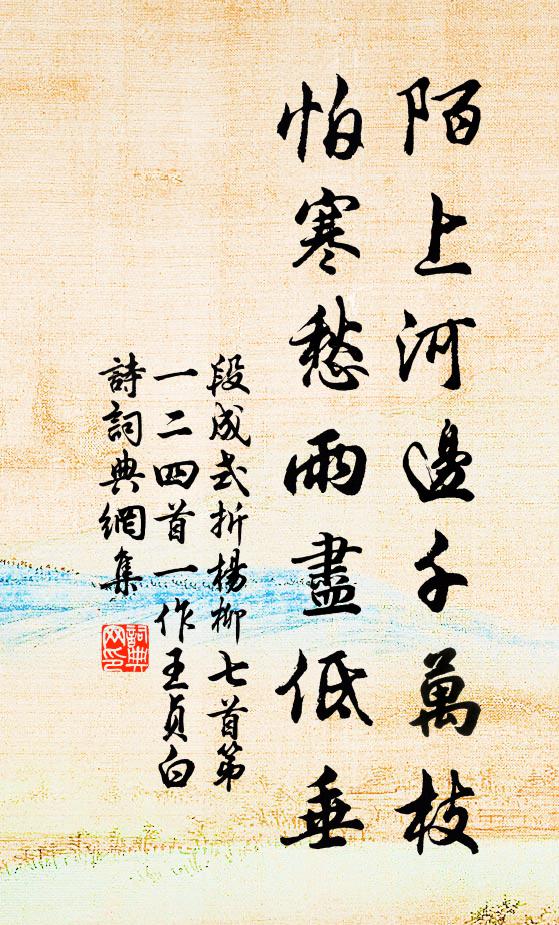 陌上河邊千萬枝
怕寒愁雨盡低垂
段成式折楊柳七首第
一二四首一作王貞白
詩詞典網集
詞典網印